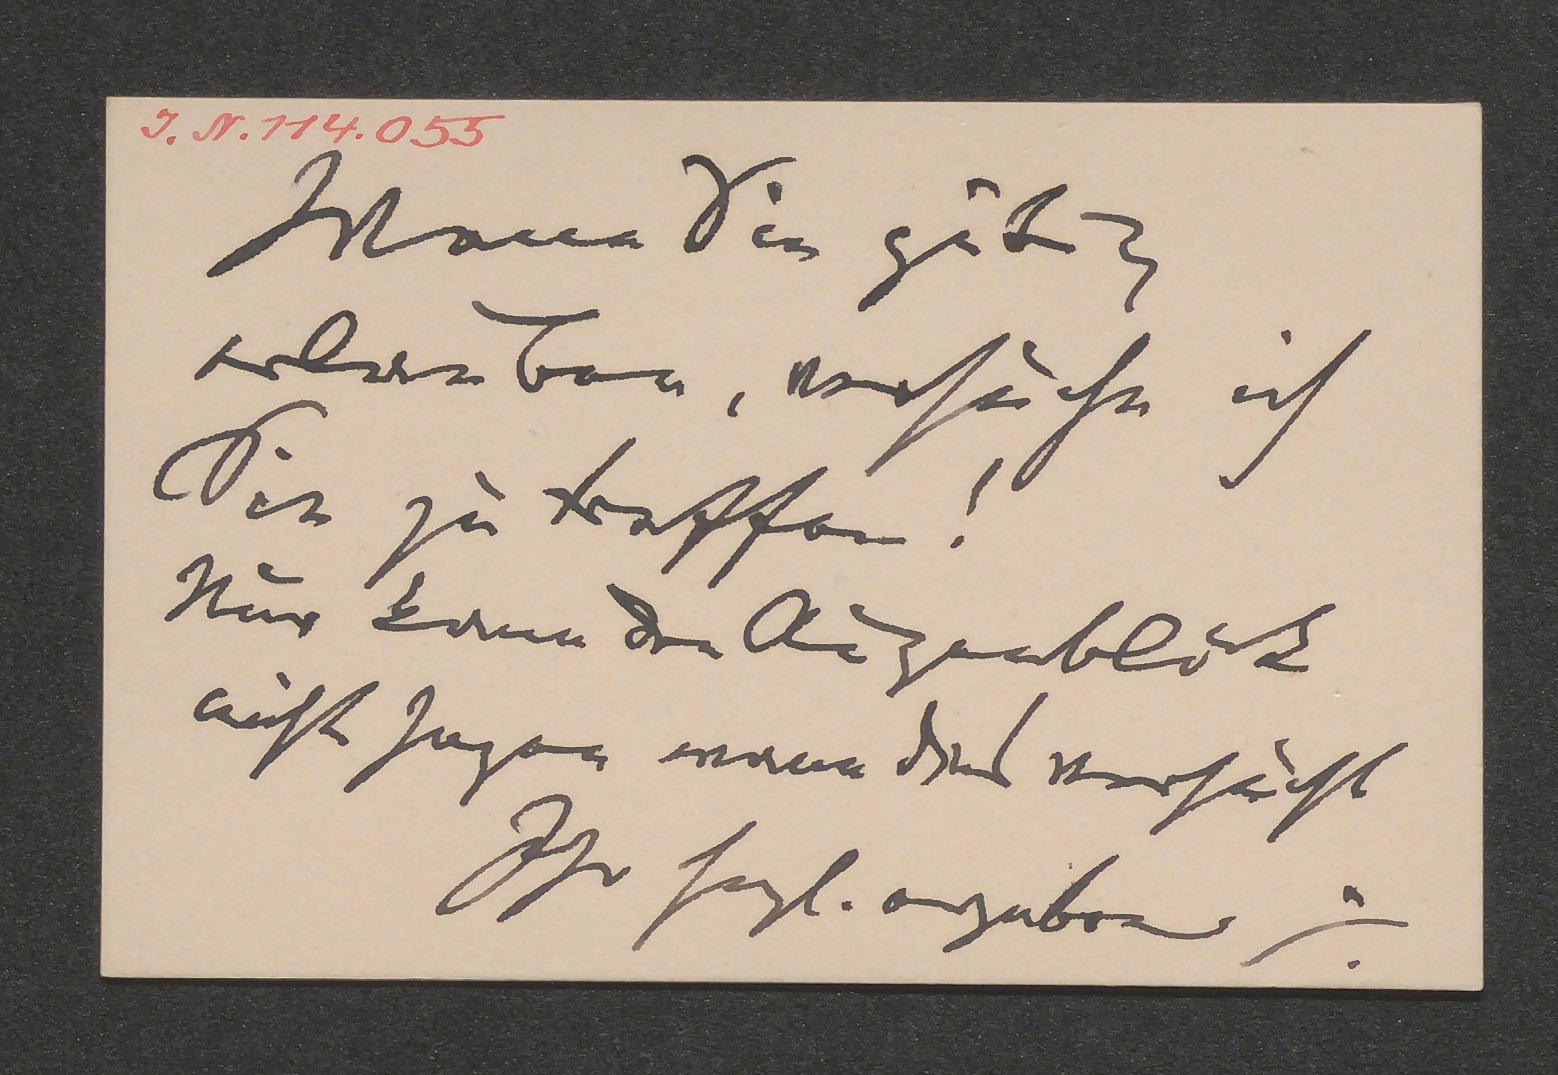 J. N. 114.055
Wenn Sie gütig
erlauben, versuche ich
Sie zu treffen!
Nur kann den Augenblick
nicht sagen wann dies versucht
Ihr herzl. ergebener